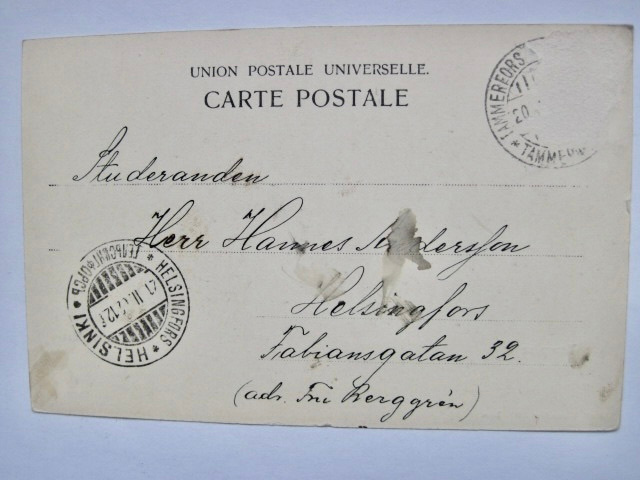 UNION POSTALE UNIVERSELLE.
CARTE POSTALE
TAMMERFORS
20
TAMMER
Studeranden
Herr Hannes Andersson
Helsingfors
Fabiansgatan 32.
(adr. Berggrén)
HELSINGFORS * HELSINKI * ГЕЛЬСИНГФОРСЪ *